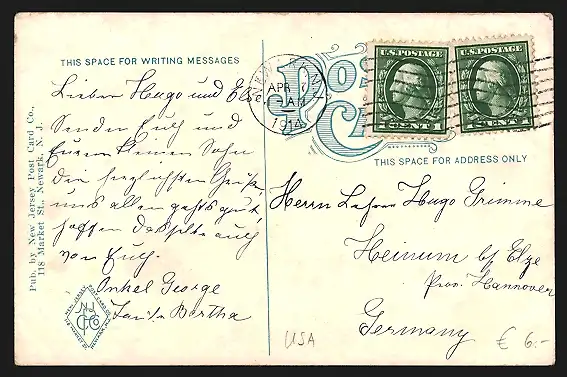 THIS SPACE FOR WRITING MESSAGES
Lieber Hugo und Else
Senden Euch und
Eurem kleinen Sohn
die herzlichsten Grüße,
uns allen gehts gut
hoffen dasselbe auch
von Euch.
Onkel George
Tante Bertha
Pub. by New Jersey Post Card Co.,
118 Market St., Newark, N. J.
NEW JERSEY POST CARD CO.
NEWARK, N.J.
APR 7
AM
1914
Post
Card
U.S. POSTAGE
1 CENT 1
U.S. POSTAGE
1 CENT 1
THIS SPACE FOR ADDRESS ONLY
Herrn Lehrer Hugo Grimme
Heinum bf Elze
Prov. Hannover
Germany
USA
€ 6.-